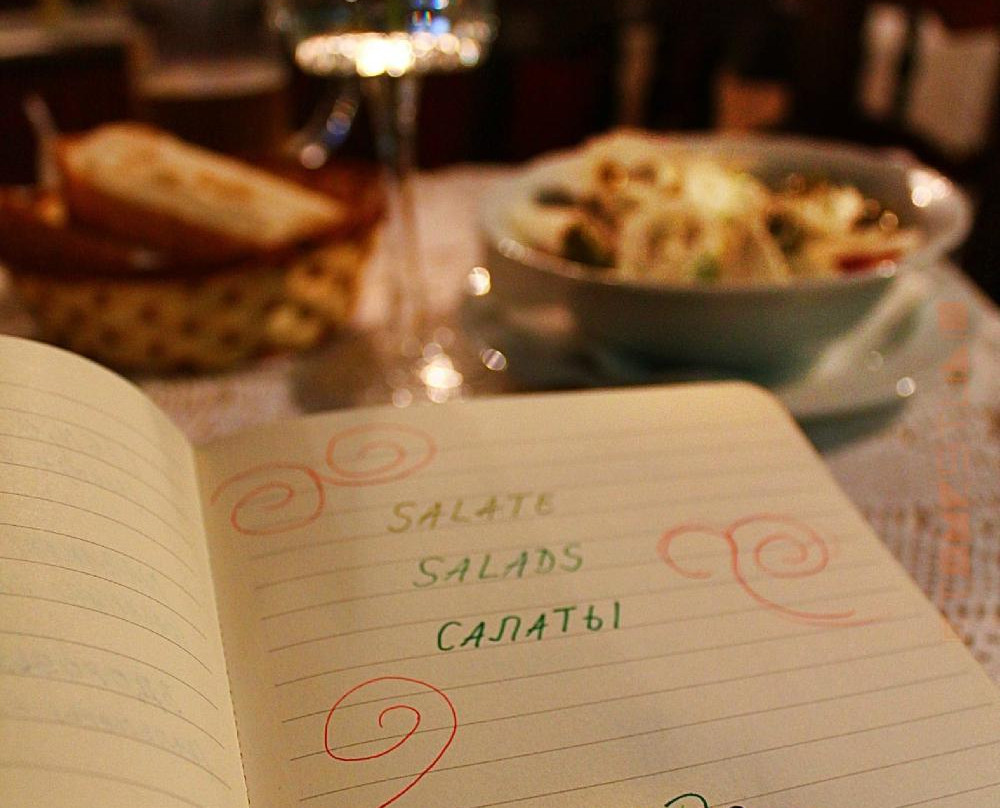 SALATE
SALADS
САЛАТЫ